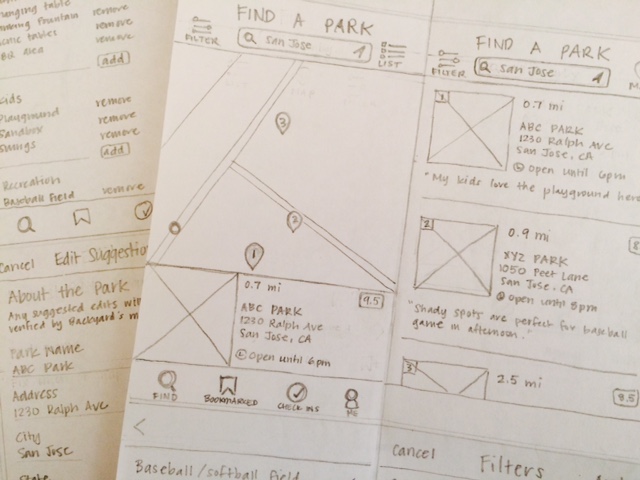 remove
remove
remove
BBQ area
add
Kids
Playground remove
Sandbox remove
Swings remove
add
Recreation
Baseball Field remove
Cancel Edit Suggestio
About the Park
Any suggested edits
verified by Backyard's
Park Name
ABC Park
Address
1230 Ralph Ave
City
San Jose
State
FIND A PARK
FILTER
San Jose
LIST
3
2
1
0.7 mi
9.5
ABC PARK
1230 Ralph Ave
San Jose, CA
Open until 6pm
FIND
BOOKMARKED
CHECK INS
ME
<
Baseball/softball Field
FIND A PARK
FILTER
San Jose
1
0.7 mi
ABC PARK
1230 Ralph Ave
San Jose, CA
Open until 6pm
"My kids love the playground here
2
0.9 mi
XYZ PARK
1050 Peet Lane
San Jose, CA
Open until 8pm
"Shady spots are perfect for baseball
game in afternoon."
3
2.5 mi
8.5
Cancel Filters